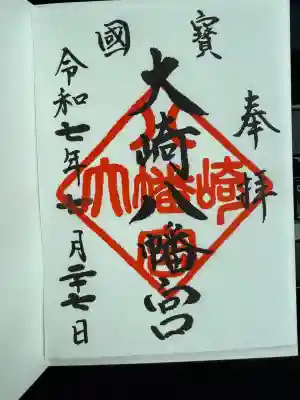 奉拝
寳國
大崎八幡宮
令和七年 月二十七日
大崎八幡宮